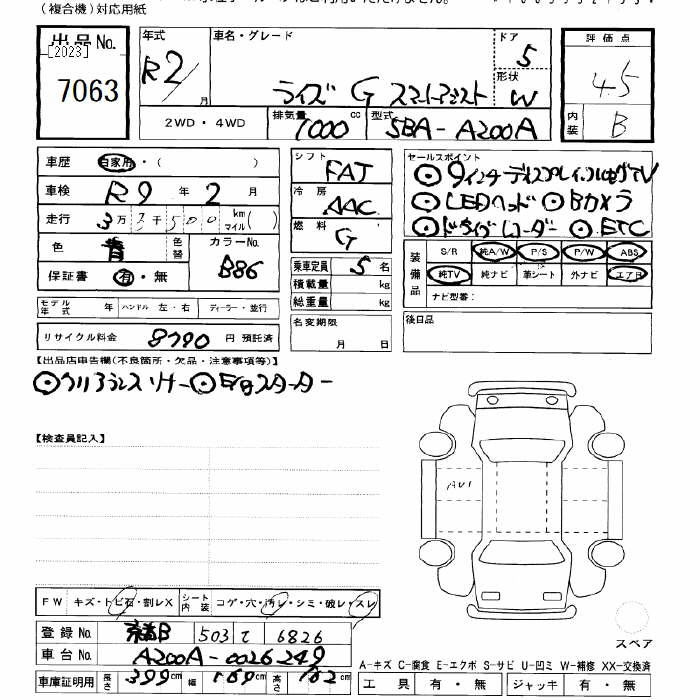 (複合機)対応用紙
出品No.
[2023]
7063
年式
R2/
月
車名・グレード
ライズ G スマートアシスト
ドア
5
形状
W
評価点
4.5
内装
B
2WD・4WD
排気量
1000
cc
型式
5BA-A200A
車歴 自家用・( )
車検 R9 年 2 月
走行 3万 千500 km マイル( )
色 青 色替 カラーNo. B86
保証書 有・無
モデル年式 年 ハンドル 左・右 ディーラー・並行
リサイクル料金 8790 円 預託済
シフト FAT
冷房 AAC
燃料 G
乗車定員 5 名
積載量 kg
総重量 kg
名変期限
月 日
セールスポイント
9インチディスプレイ
LEDヘッド Bカメラ
ドライブレコーダー ETC
装備品
S/R 純A/W P/S P/W ABS
純TV 純ナビ 革シート 外ナビ エアB
ナビ型番:
後日品
【出品店申告欄(不良箇所・欠品・注意事項等)】
クリアランスソナー
【検査員記入】
AU1
FW キズ・トビ石・割レX シート内装 コゲ・穴・汚レ・シミ・破レ・スレ
登録No. 京都 503 て 6826
車台No. A200A-0026249
車庫証明用 長さ 399cm 幅 169cm 高さ 162cm
スペア
A-キズ C-腐食 E-エクボ S-サビ U-凹ミ W-補修 XX-交換済
工具 有・無 ジャッキ 有・無